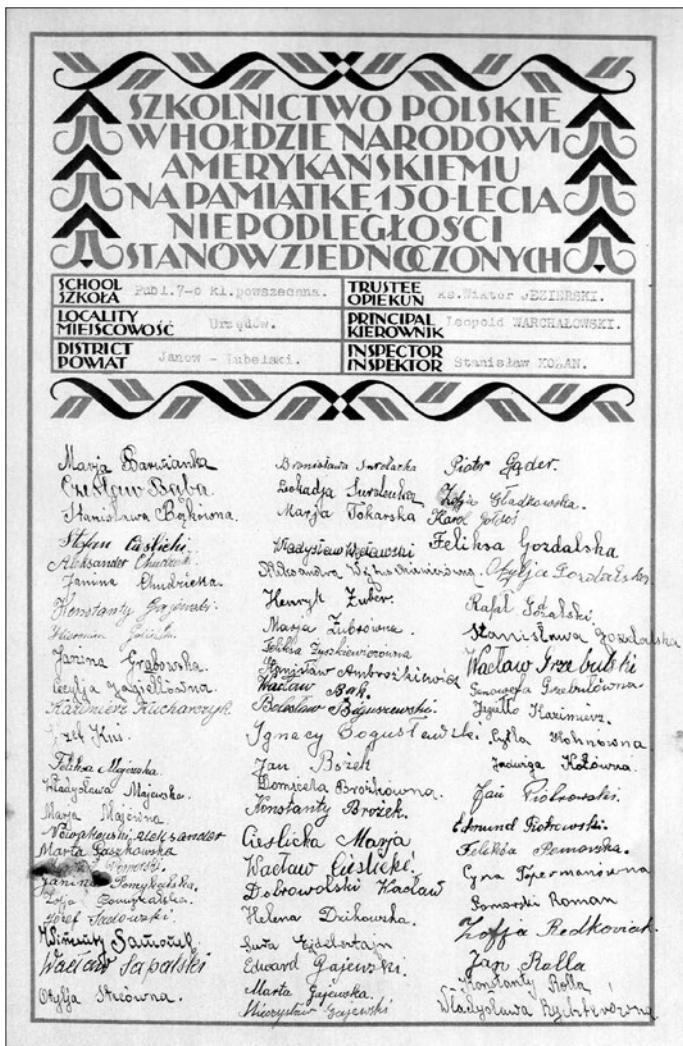 SZKOLNICTWO POLSKIE
W HOŁDZIE NARODOWI
AMERYKAŃSKIEMU
NA PAMIĄTKĘ 150-LECIA
NIEPODLEGŁOŚCI
STANÓW ZJEDNOCZONYCH
SCHOOL
SZKOŁA
Publ.7-o kl.powszechna.
TRUSTEE
OPIEKUN
ks.Wiktor JEZIERSKI.
LOCALITY
MIEJSCOWOŚĆ
Urzędów.
PRINCIPAL
KIEROWNIK
Leopold WARCHAŁOWSKI.
DISTRICT
POWIAT
Janow - lubelski.
INSPECTOR
INSPEKTOR
Stanisław KOZAN.
Marja Barwianka
Czesław Bąba
Stanisława Bąkówna.
Stefan Cieślicki
Aleksander
Janina
Konstanty Gajewski.
Janina Grabowska.
Cecylja Jagiełłówna.
Kazimierz Kucharczyk
Józef Kuś
Feliksa Majewska.
Władysława Majewska.
Marja
Nowakowski Aleksander
Marta Paszkowska
Janina Pomykalska.
Zofja Pomykalska.
Józef Sadowski.
Wincenty
Wacław Sapalski
Otylja
Bronisława
Leokadja
Marja Tokarska
Władysław Węcławski
Aleksandra
Henryk Zuber.
Marja Żubrówna.
Feliksa Żyszkiewiczówna
Stanisław Ambrożkiewicz
Wacław Bąk.
Bolesław Biguszewski.
Ignacy
Jan Bożek
Domicela Brożkówna.
Konstanty Brożek.
Cieślicka Marja
Wacław Cieślicki.
Dobrowolski Wacław
Helena Dzikowska.
Edward Gajewski.
Marta Gajewska.
Mieczysław Gajewski
Piotr Gąder.
Zofja Gładkowska.
Karol Gołdoś
Feliksa Gozdalska
Otylja Gozdalska
Rafał
Stanisława Gozdalska
Wacław Grzebulski
Genowefa Grzebulówna
Jagiełło Kazimierz.
Jadwiga Kołówna.
Jan Piotrowski.
Edmund Piotrowski.
Feliksa Pomorska.
Pomorski Roman
Zofja Redkowiak
Jan Rolla
Konstanty Rolla
Władysława